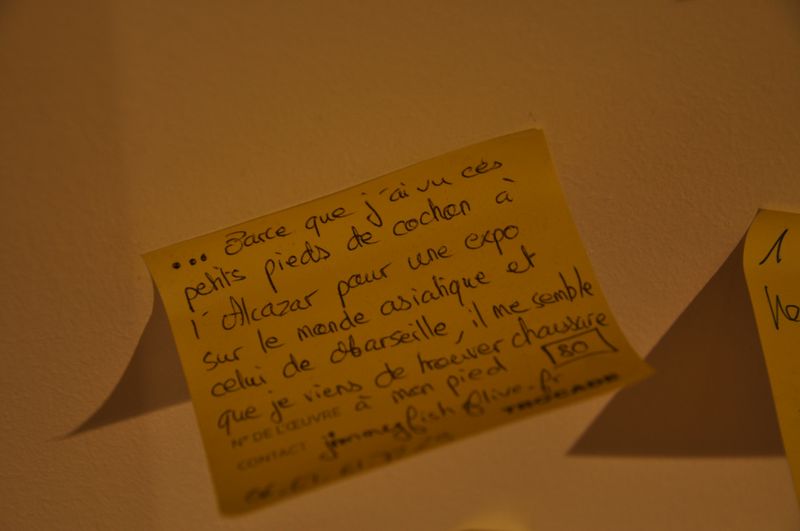 ... Parce que j'ai vu ces
petits pieds de cochon à
l'Alcazar pour une expo
sur le monde asiatique et
celui de Marseille, il me semble
que je viens de trouver chaussure
à mon pied
N° DE L'ŒUVRE 80
CONTACT
TROCADE
1